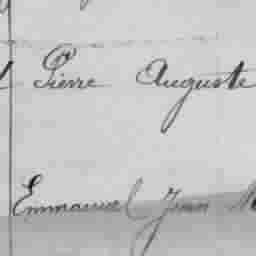 Pierre Auguste
Emmanuel Jean